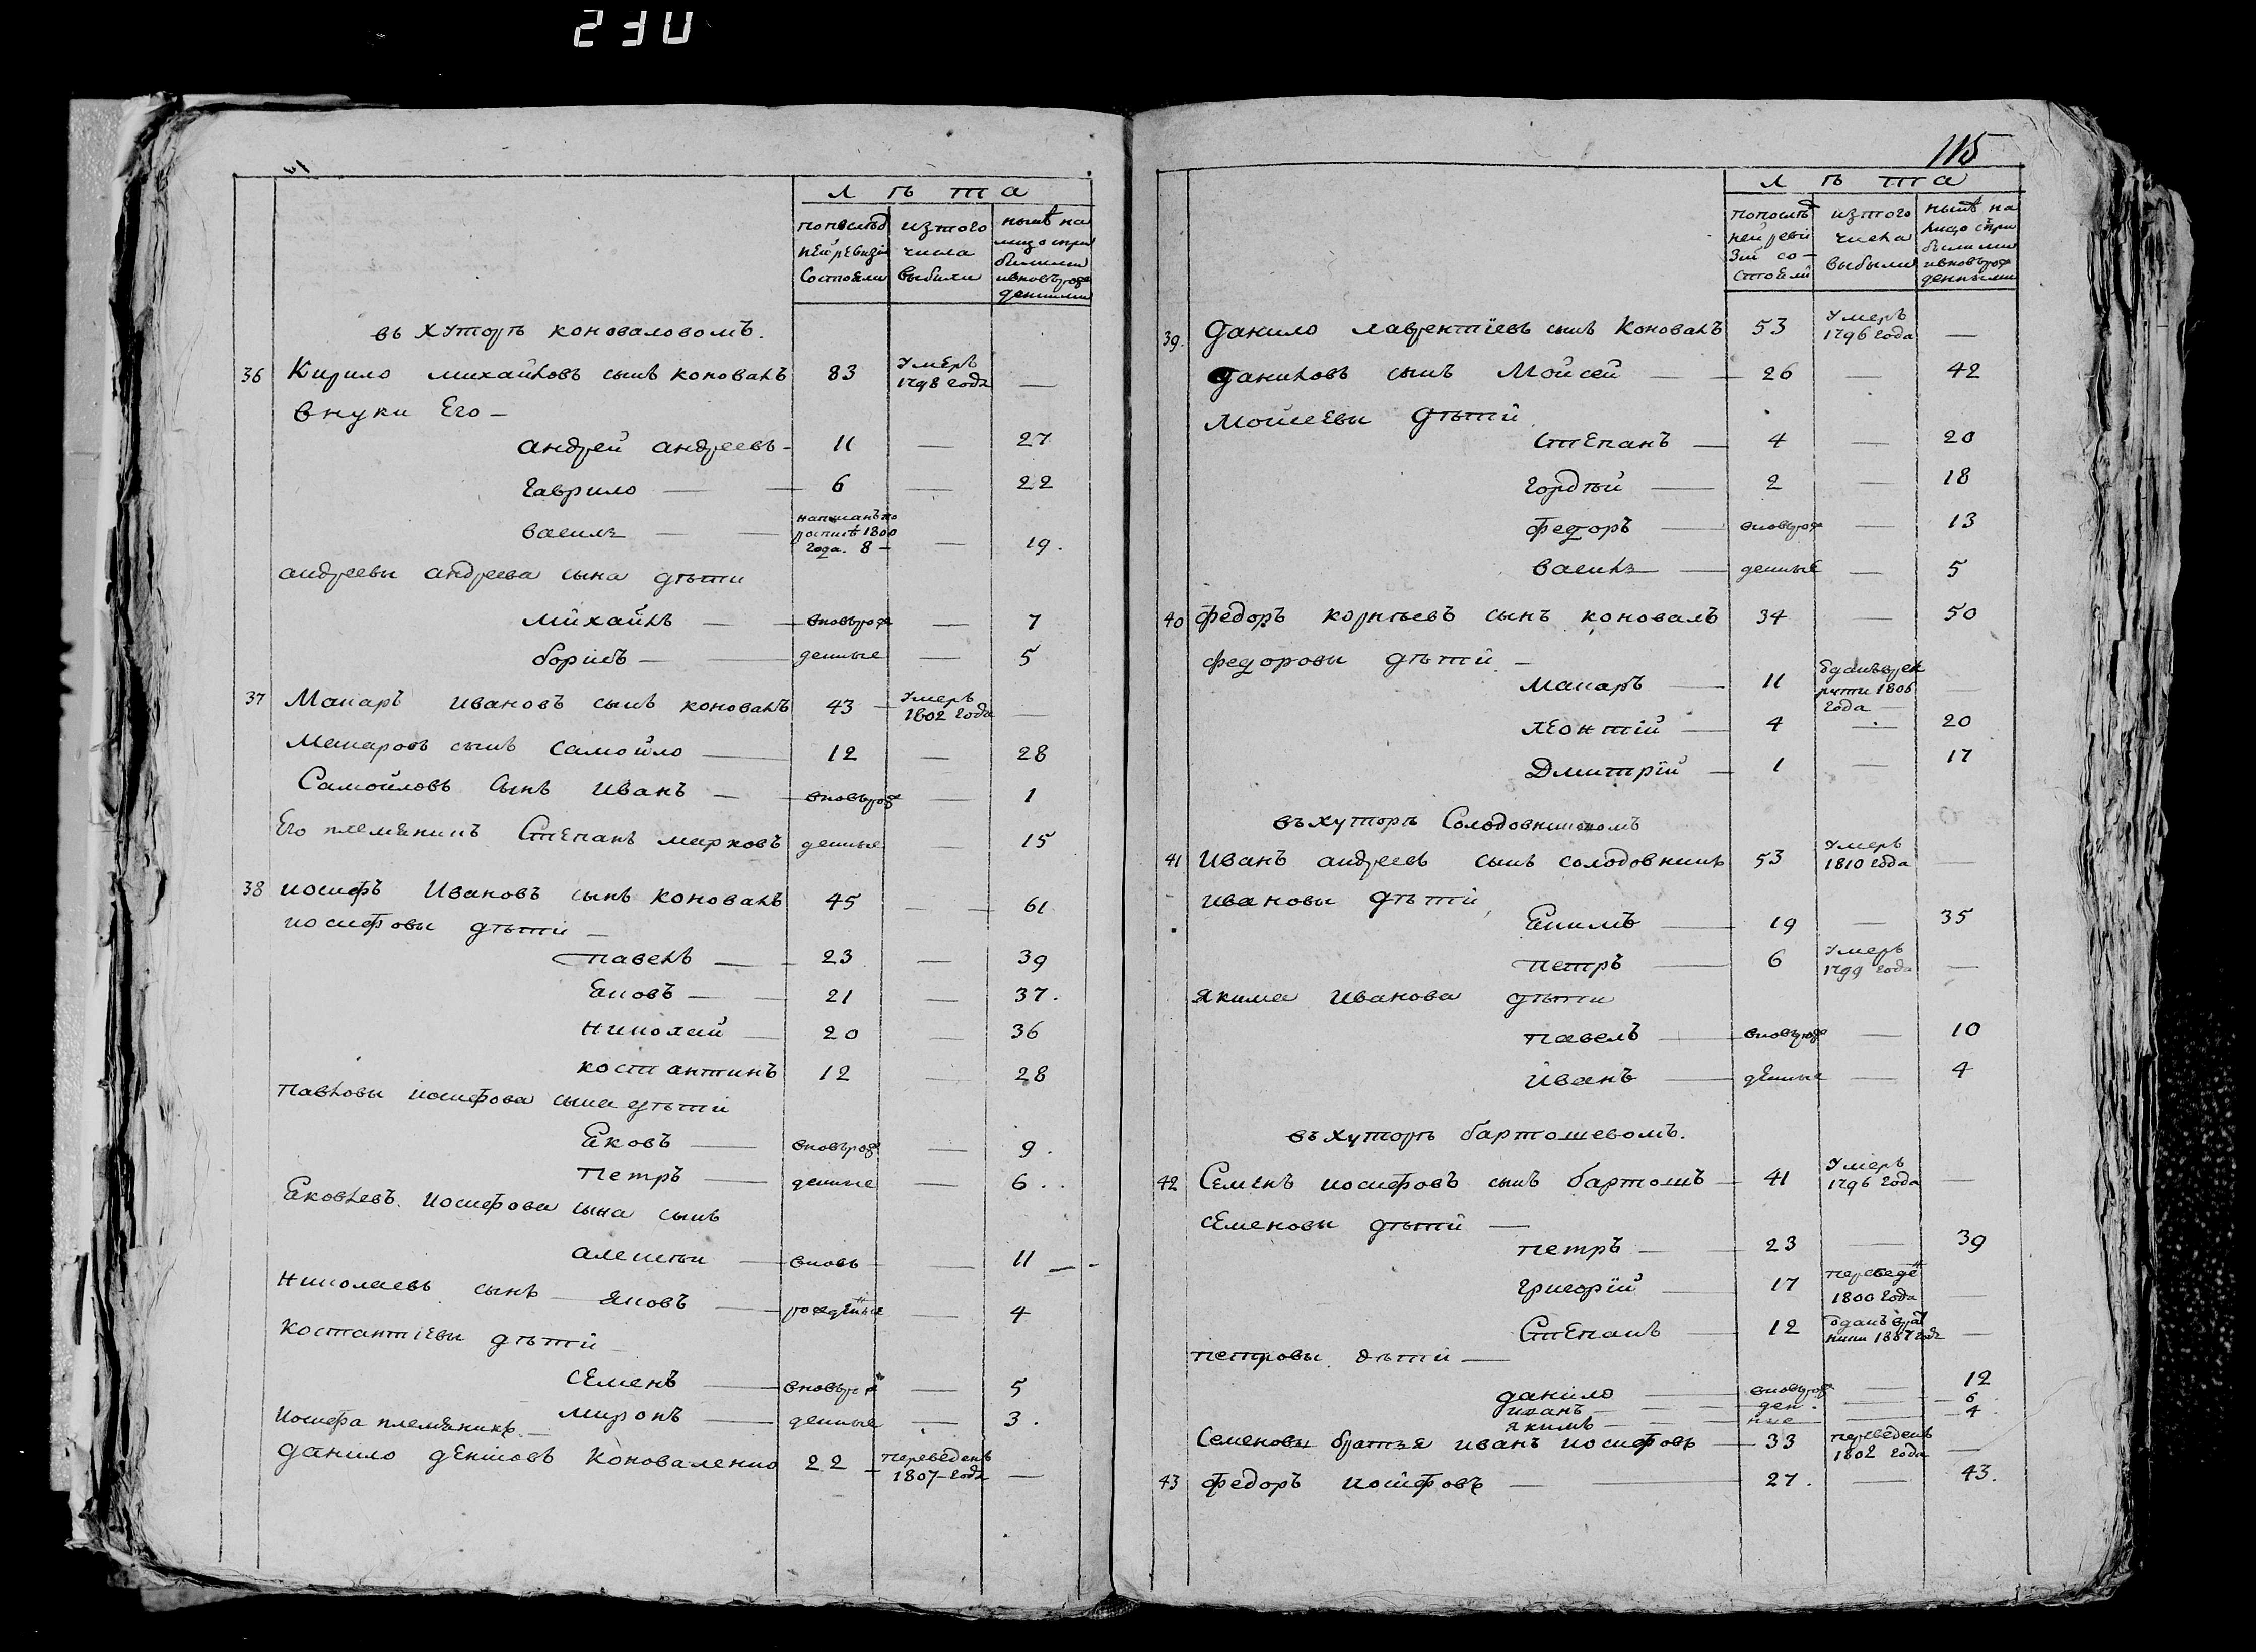 230
Лѣта
попослѣд изтого нынѣ на
ней ревизіи числа лицо спри
состояли выбыли былыми
ивновърож
денными
въ хуторѣ коноваловомъ.
36 Кирило михайловъ сынъ коновалъ 83 умеръ 1798 года —
внуки Его —
андрей андреевъ — 11 — 27
гаврило — 6 — 22
василь — написанъ по росписи 1800 года. 8 — — 19.
андреевы андреева сына дѣти
михайлъ — вновърож — 7
борисъ — денные — 5
37 Макаръ ивановъ сынъ коновалъ 43 — умеръ 1802 года —
Макаровъ сынъ самойло — 12 — 28
Самойловъ сынъ иванъ — вновърож — 1
Его племянникъ Степанъ марковъ денные — 15
38 иосифъ Ивановъ сынъ коновалъ 45 — 61
иосифовы дѣти —
павелъ — 23 — 39
Яковъ — 21 — 37.
николай — 20 — 36
костантинъ 12 — 28
павловы иосифова сына дѣти
Яковъ — вновърож — 9.
петръ — денные — 6..
Яковлевъ иосифова сына сынъ
алексѣй — вновь — 11
николаевъ сынъ яковъ — рожденные — 4
костантіевы дѣти —
семенъ — вновърож — 5
миронъ — денные — 3.
иосифа племянникъ —
данило денисовъ коноваленко 22 — переведенъ 1807 года —
115
Лѣта
попослѣд изтого нынѣ на
ней реви числа лицо спри
зіи со- выбыли былыми
стояли ивновърож
денными
39. данило лаврентіевъ сынъ коновалъ 53 умеръ 1796 года —
даниловъ сынъ Мойсей — 26 — 42
мойсеевы дѣти
степанъ — 4 — 20
гордѣй — 2 — 18
федоръ — вновърож — 13
василь — денные — 5
40 федоръ корнѣевъ сынъ коновалъ 34 — 50
федоровы дѣти —
макаръ — 11 отданъ врек руты 1806 года —
леонтій — 4 — 20
Дмитрій — 1 — 17
въ хуторѣ Солодовниковомъ
41 иванъ андреевъ сынъ солодовникъ 53 умеръ 1810 года —
ивановы дѣти
Якимъ — 19 — 35
петръ — 6 умеръ 1799 года —
якима иванова дѣти
павелъ — вновърож — 10
иванъ — денные — 4
въ хуторѣ бартошевомъ.
42 Семенъ иосифовъ сынъ бартошъ — 41 умеръ 1796 года —
семеновы дѣти —
петръ — 23 — 39
григорій — 17 переведе 1800 года —
Степанъ — 12 отданъ —
петровы дѣти —
данило — вновърож — 12
иванъ — ден — 6
якимъ — ные — 4
Семеновы братья иванъ иосифовъ — 33 переведенъ 1802 года —
43 федоръ иосифовъ — 27. — 43.